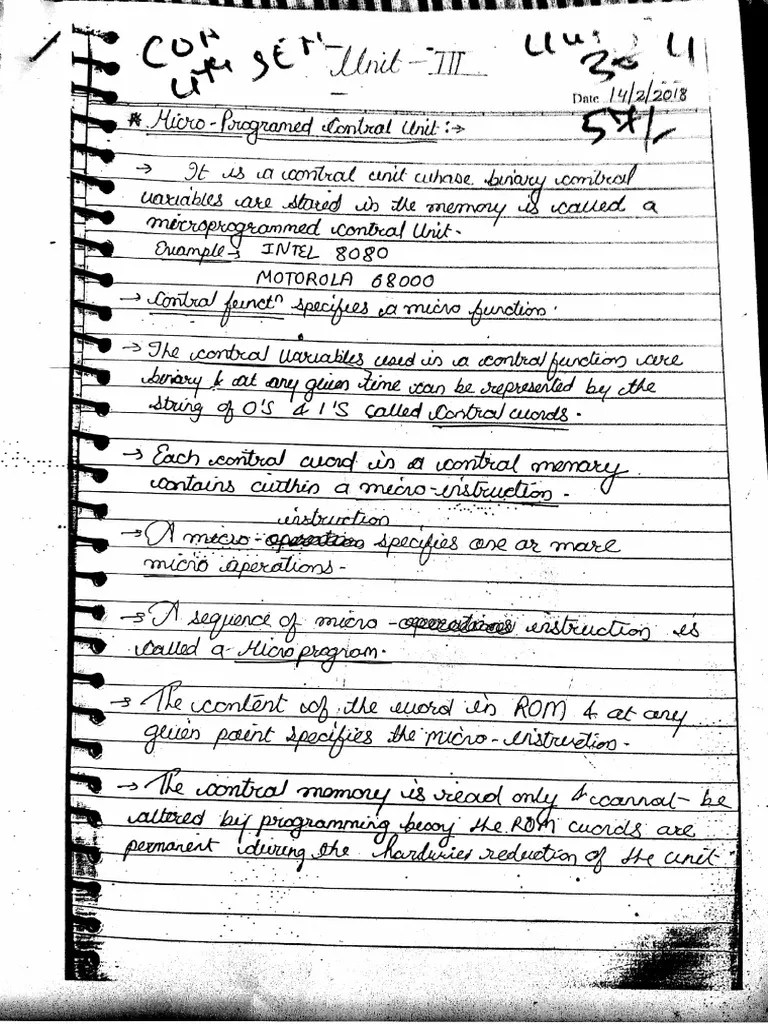 COM
4TH SEM
Unit - III
30
Date 14/2/2018
57%
* Micro-Programed Control Unit :→
→ It is a control unit whose binary control
variables are stored in the memory is called a
microprogrammed control Unit.
Example → INTEL 8080
MOTOROLA 68000
→ Control functⁿ specifies a micro function.
→ The control variables used in a control function are
binary & at any given time can be represented by the
string of 0's & 1's called control words.
→ Each control word in a control memory
contains within a micro-instruction.
instruction
→ A micro-operation specifies one or more
micro operations.
→ A sequence of micro-operations instruction is
called a Microprogram.
→ The content of the word in ROM & at any
given point specifies the micro-instruction.
→ The control memory is read only & cannot be
altered by programming becoz the ROM words are
permanent during the reduction of the unit